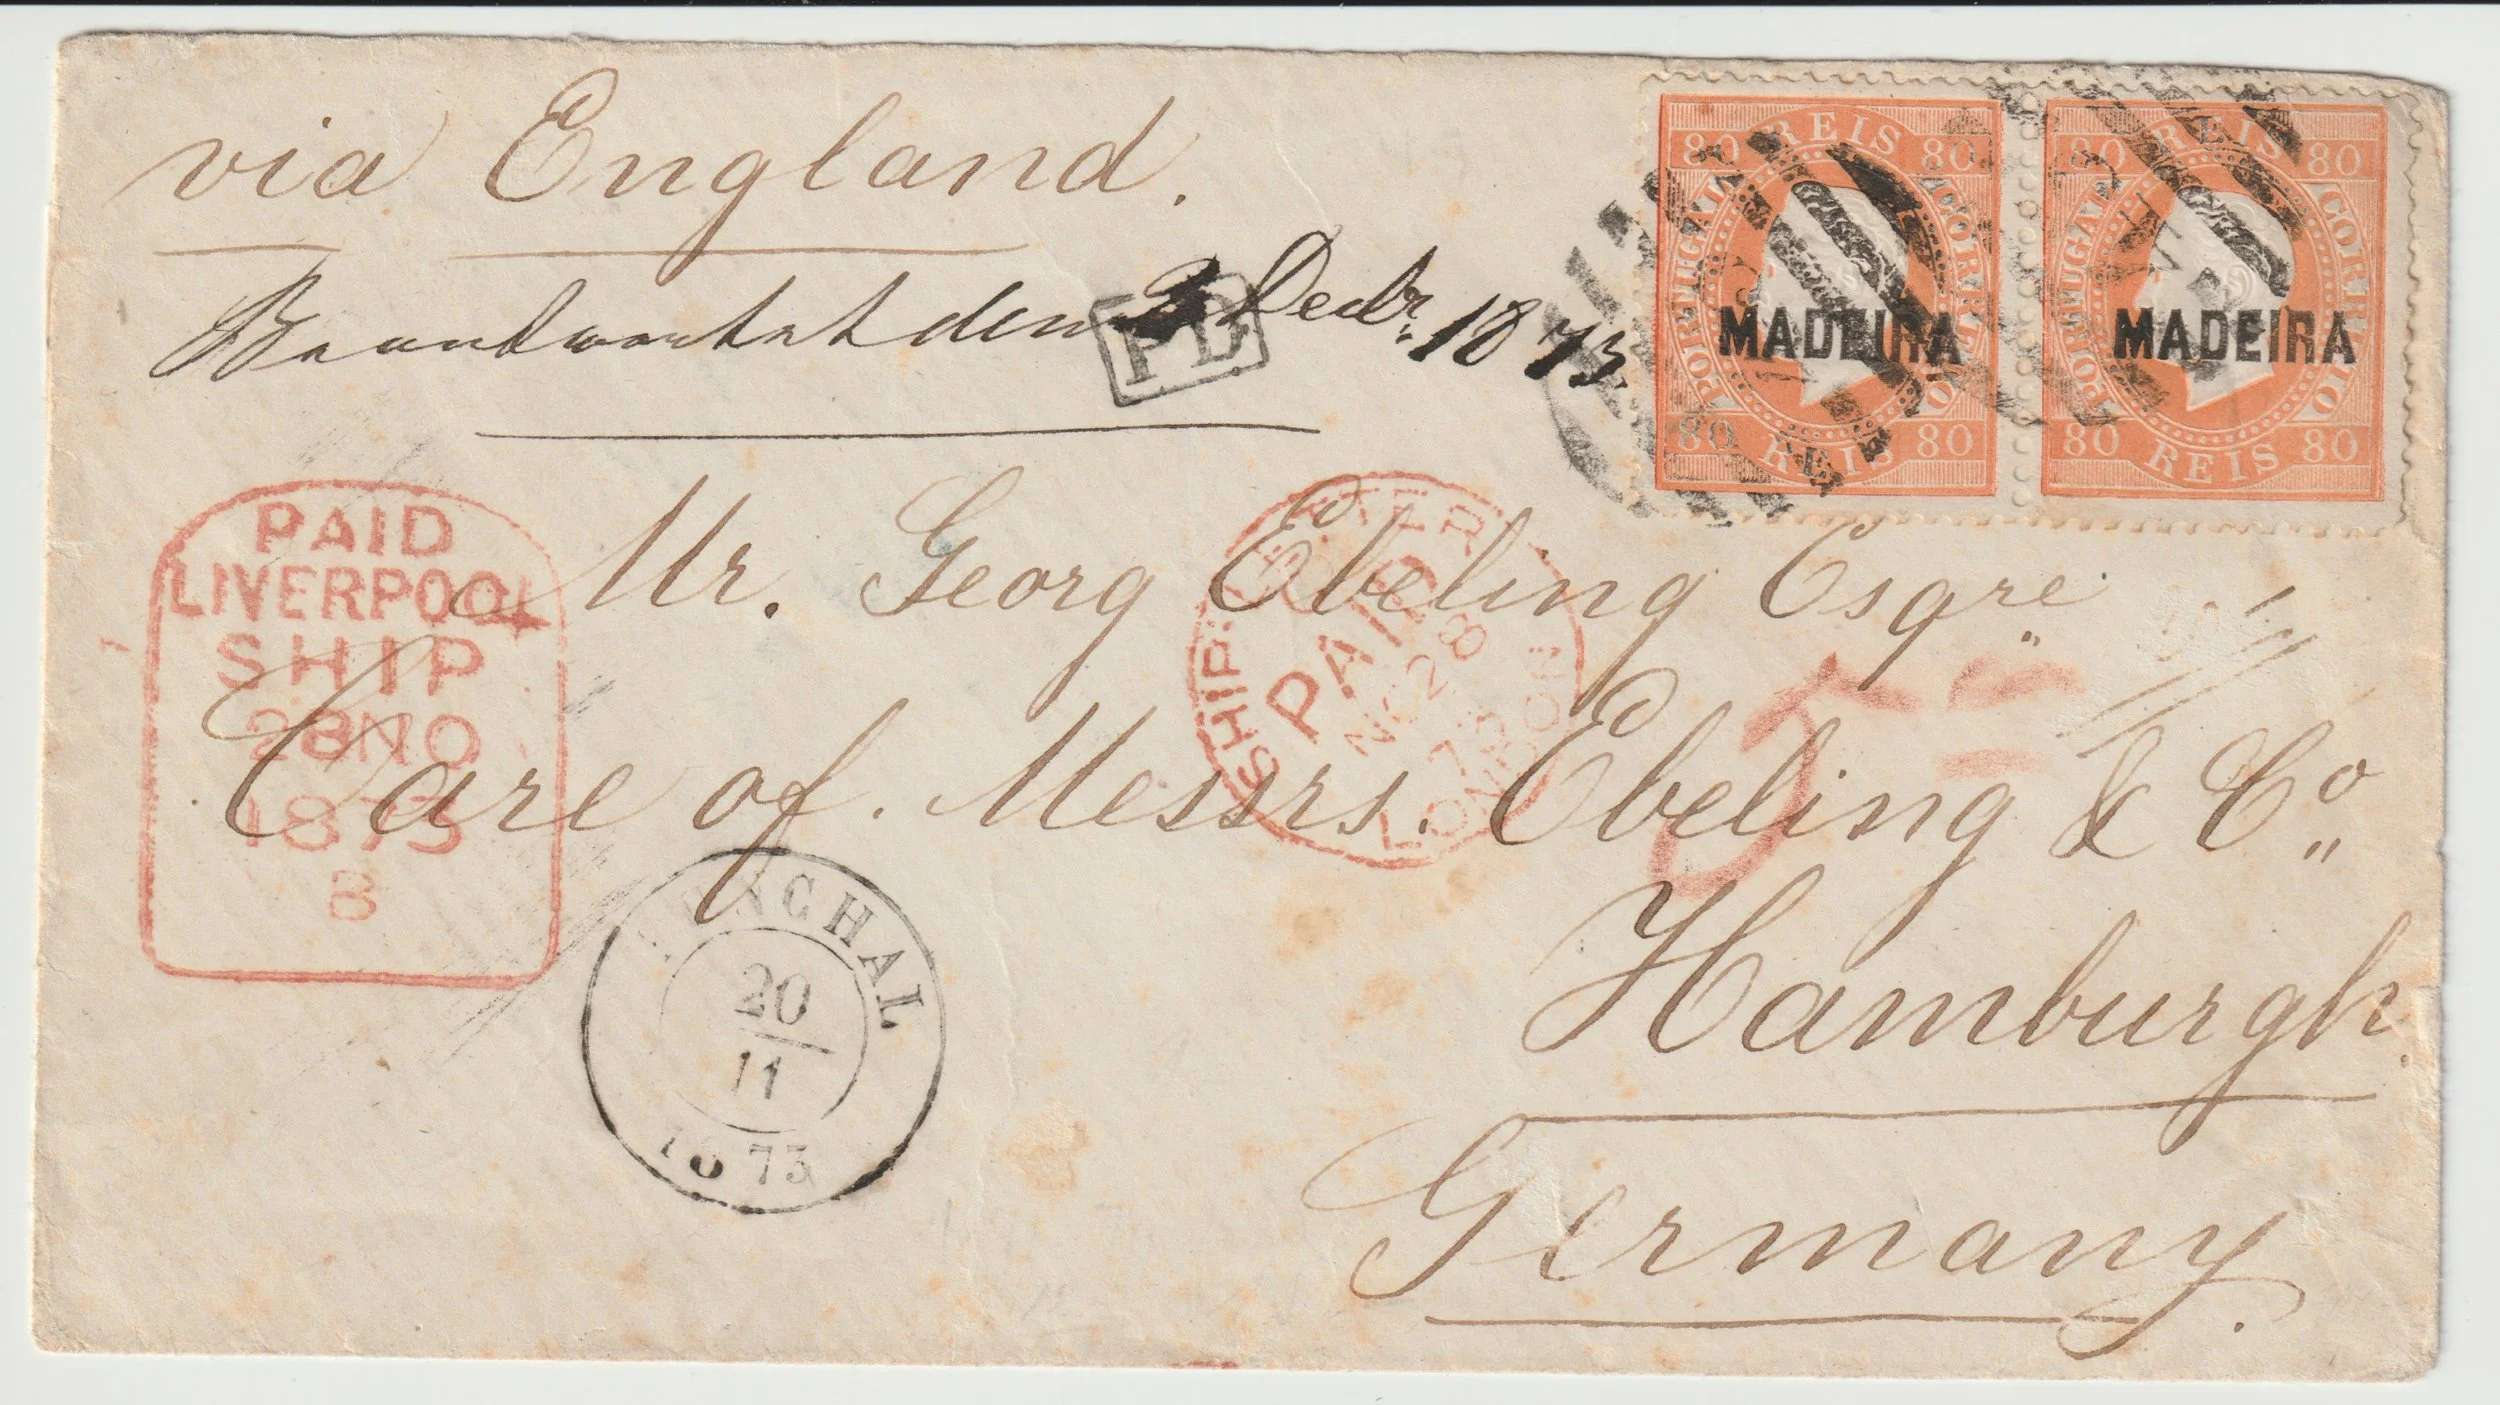 via England.
Beantwortet den 3 Decbr. 1873
PD
80 REIS 80
PORTUGAL CORREIO
MADEIRA
80 REIS 80
80 REIS 80
PORTUGAL CORREIO
MADEIRA
80 REIS 80
PAID
LIVERPOOL
SHIP
28 NO
1873
B
SHIP LETTER
PAID
NO 28
73
LONDON
Mr. Georg Ebeling Esqre.
Care of Messrs. Ebeling & Co.
Hamburgh.
Germany.
FUNCHAL
20
11
1873